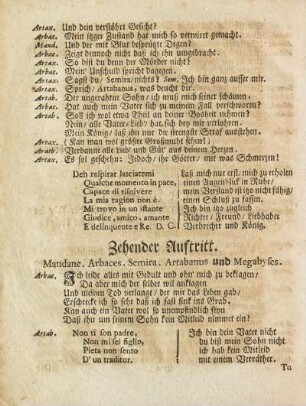 Artax. Und dein verstöhrt Gesicht?
Arbac. Mein itzger Zustand hat mich so verwirrt gemacht.
Mand. Und der mit Blut besprützte Degen?
Arbac. Zeigt dennoch nicht daß ich ihn umgebracht.
Artax. So bist du denn der Mörder nicht?
Arbac. Mein' Unschuld spricht dagegen.
Artax. Sagst du, Semira, nichts? Sem. Ich bin ganz ausser mir.
Artax. Sprich, Artabanus, was deucht dir.
Artab. Der ungerathne Sohn, ich muß mich seiner schämen.
Arbac. Hat auch mein Vater sich zu meinem Fall verschworen?
Artab. Soll ich wol etwa Theil an deiner Bosheit nehmen?
Nein, alle Vater-Lieb, han, sich bey mir verlohren.
Mein König, laß ihn nur die strengste Straf ausstehen.
Artax. (Kan man wol größre Großmuth sehen!)
Artab. Verbannt alle Lieb' und Gür' aus deinem Herzen.
Artax. Es sol geschehn: Jedoch, ihr Götter, mit was Schmerzen!
Deh respirar lasciatemi
Qualche momento in pace,
Capace di risolvere
La mia ragion non è.
Mi trovo in un istante
Giudice, amico, amante
E delinquente e Re. D. C.
Laß mich nur erst, mich zu erholen
einen Augenblick in Ruhe,
mein Verstand ist itzo nicht fähig,
einen Schluß zu fassen.
Ich bin itzo zugleich
Richter, Freund, Liebhaber
Verbrecher und König.
Zehender Auftritt.
Mandane, Arbaces, Semira, Artabanus und Megabyses.
Arbac. Ich leide alles mit Gedult und ohn' mich zu beklagen,
Da aber mich der selber will anklagen
Und meinen Tod verlangt, der mir das Leben gab,
Erschreck ich so sehr daß ich fast sink ins Grab.
Kan auch ein Vater wol so unempfindlich seyn
Daß ihn um seinem Sohn kein Mitleid nimmet ein?
Artab. Non ti son padre,
Non mi sei figlio,
Pietà non sento
D'un traditor.
Ich bin dein Vater nicht
du bist mein Sohn nicht
ich hab kein Mitleid
mit einem Verräther.
Tu